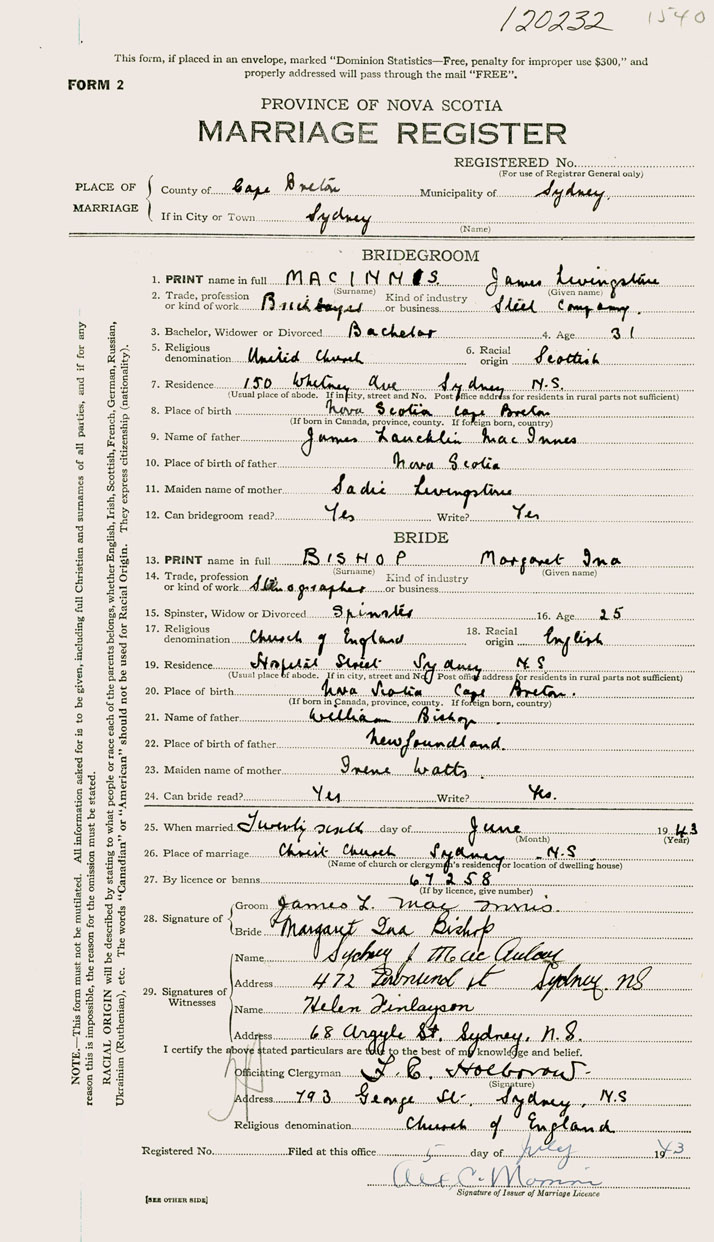 120232 1540
This form, if placed in an envelope, marked "Dominion Statistics—Free, penalty for improper use $300," and
properly addressed will pass through the mail "FREE".
FORM 2
PROVINCE OF NOVA SCOTIA
MARRIAGE REGISTER
REGISTERED No.
(For use of Registrar General only)
PLACE OF MARRIAGE
County of Cape Breton Municipality of Sydney.
If in City or Town Sydney
(Name)
BRIDEGROOM
1. PRINT name in full MACINNIS. James Levingstone
(Surname) (Given name)
2. Trade, profession or kind of work Kind of industry or business Steel Company.
3. Bachelor, Widower or Divorced Bachelor 4. Age 31
5. Religious denomination United Church 6. Racial origin Scottish
7. Residence 150 Whitney Ave Sydney N.S.
(Usual place of abode. If in city, street and No. Post office address for residents in rural parts not sufficient)
8. Place of birth Nova Scotia Cape Breton
(If born in Canada, province, county. If foreign born, country)
9. Name of father James Lauchlin MacInnes
10. Place of birth of father Nova Scotia
11. Maiden name of mother Sadie Levingstone
12. Can bridegroom read? Yes Write? Yes
BRIDE
13. PRINT name in full BISHOP Margaret Ina
(Surname) (Given name)
14. Trade, profession or kind of work Stenographer Kind of industry or business
15. Spinster, Widow or Divorced Spinster 16. Age 25
17. Religious denomination Church of England 18. Racial origin English
19. Residence Hospital Street Sydney N S
(Usual place of abode. If in city, street and No. Post office address for residents in rural parts not sufficient)
20. Place of birth Nova Scotia Cape Breton.
(If born in Canada, province, county. If foreign born, country)
21. Name of father William Bishop.
22. Place of birth of father Newfoundland.
23. Maiden name of mother Irene Watts.
24. Can bride read? Yes Write? Yes.
25. When married Twenty sixth day of June 1943
(Month) (Year)
26. Place of marriage Christ Church Sydney N.S.
(Name of church or clergyman's residence or location of dwelling house)
27. By licence or banns 67258
(If by licence, give number)
28. Signature of Groom James L. Mac Innis.
Bride Margaret Ina Bishop
29. Signatures of Witnesses
Name Sydney J MacAulay
Address 472 Townsend St Sydney. NS
Name Helen Finlayson
Address 68 Argyle St. Sydney, N.S.
I certify the above stated particulars are true to the best of my knowledge and belief.
Officiating Clergyman Holborow
(Signature)
Address 793 George St. Sydney, N.S
Religious denomination Church of England
Registered No. Filed at this office 5 day of July 1943
Signature of Issuer of Marriage Licence
[SEE OTHER SIDE]
NOTE.—This form must not be mutilated. All information asked for is to be given, including full Christian and surnames of all parties, and if for any
reason this is impossible, the reason for the omission must be stated.
RACIAL ORIGIN will be described by stating to what people or race each of the parents belongs, whether English, Irish, Scottish, French, German, Russian,
Ukrainian (Ruthenian), etc. The words "Canadian" or "American" should not be used for Racial Origin. They express citizenship (nationality).